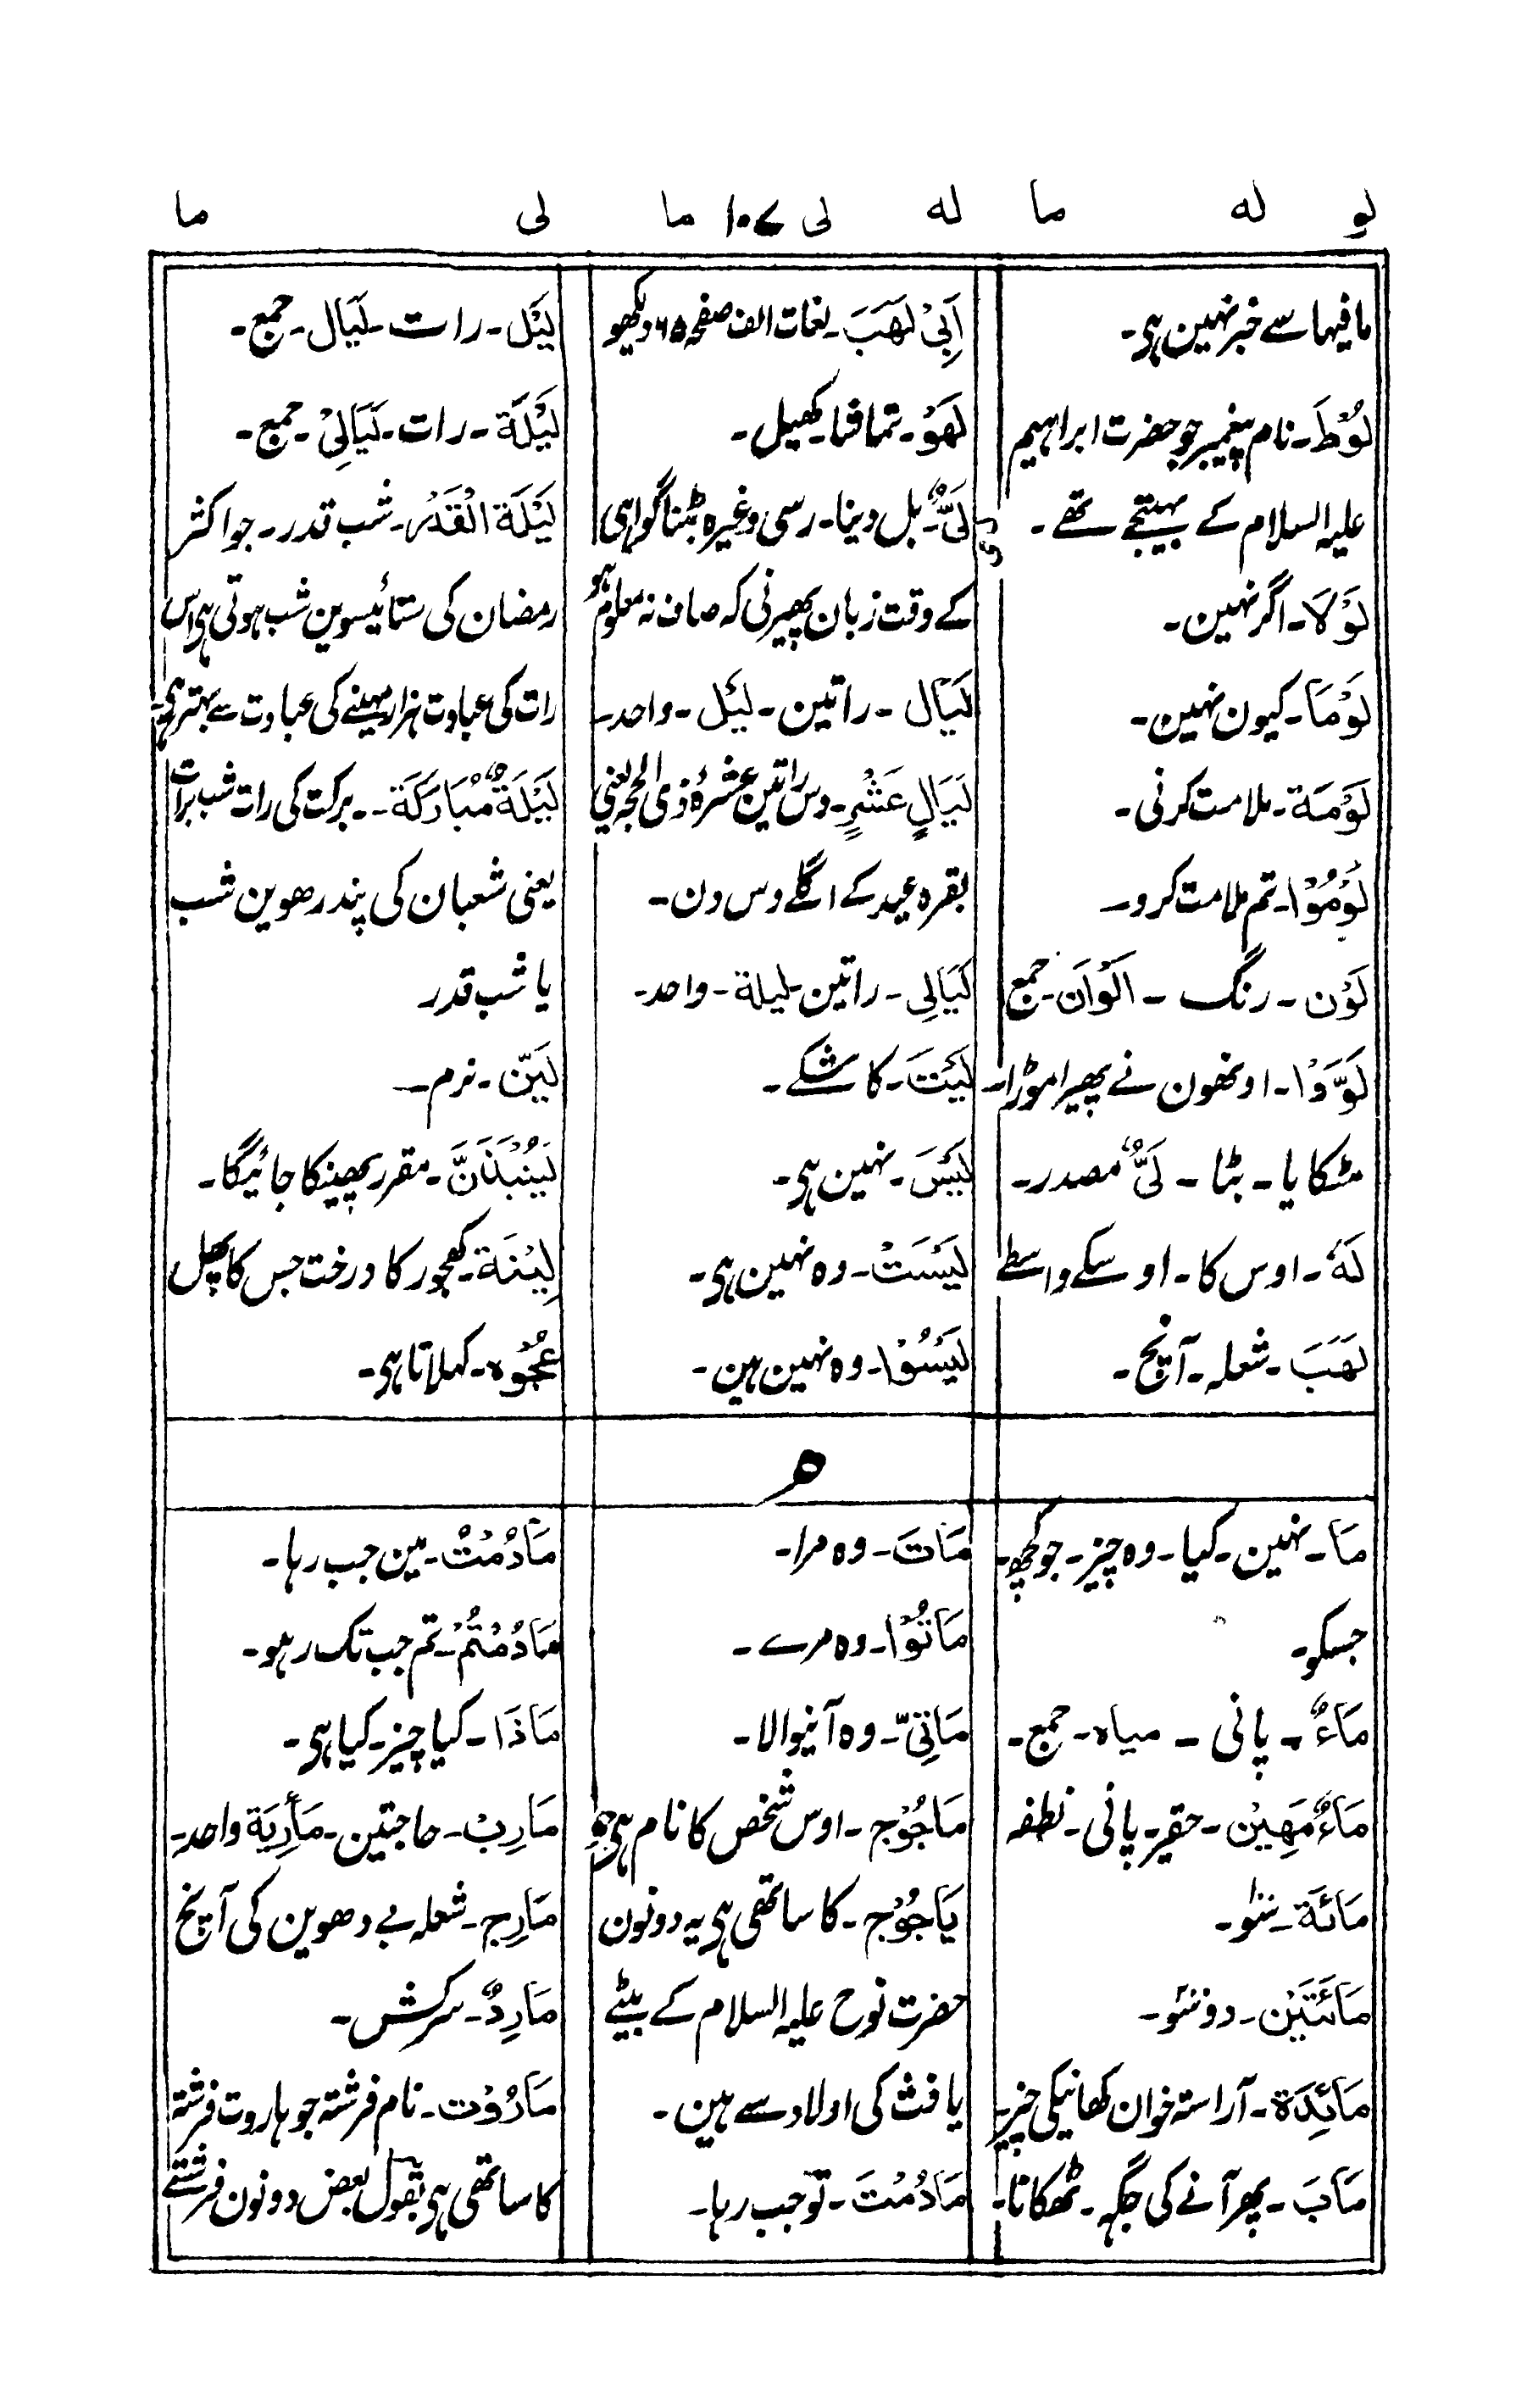 لو له ما له لی ۱۰۷ ما لی ما
مافیہا سے خبر نہین ہی۔
لُوْطَ۔ نام پیغمبر جو حضرت ابراہیم
علیہ السلام کے بہیتجے تھے۔
لَوْلَا۔ اگر نہین۔
لَوْمَا۔ کیون نہین۔
لَوْمَة۔ ملامت کرنی۔
لُوْمُوْا۔ تم ملامت کرو۔
لَوْن۔ رنگ۔ اَلْوَان۔ جمع
لَوَّوْا۔ اونھون نے پھیرا موڑا۔
مٹکایا۔ بٹا۔ لَیٌّ مصدر۔
لَهٗ۔ اوس کا۔ اوسکے واسطے
لَهَبَ۔ شعلہ۔ آنچ۔
اَبِیْ لَهَبَ۔ لغات الف صفحہ ۶۵ دیکھو
لَهْوَ۔ تماشا۔ کھیل۔
لی
لَیٌّ۔ بل دینا۔ رسی وغیرہ بٹنا گواہی
کے وقت زبان پھیرنی کہ صاف نہ معلوم ہو
لَیَال۔ راتین۔ لَیْل۔ واحد۔
لَیَالٍ عَشْرٍ۔ دس راتین عشرۂ ذی الحجہ یعنی
بقرہ عید کے اگلے دس دن۔
لَیَالِی۔ راتین۔ لیلة۔ واحد۔
لَیْتَ۔ کاشکے۔
لَیْسَ۔ نہین ہی۔
لَیْسَتْ۔ وہ نہین ہی۔
لَیْسُوْا۔ وہ نہین ہین۔
لَیْل۔ رات۔ لَیَال۔ جمع۔
لَیْلَة۔ رات۔ لَیَالِیْ۔ جمع۔
لَیْلَة الْقَدْر۔ شب قدر۔ جو اکثر
رمضان کی ستائیسوین شب ہوتی ہی اس
رات کی عبادت ہزار مہینے کی عبادت سے بہتر ہی۔
لَیْلَةٌ مُّبَارَکَة۔ برکت کی رات شب برات
یعنی شعبان کی پندرھوین شب
یا شب قدر
لَیِّن۔ نرم۔
لَیُنْبَذَنَّ۔ مقرر پھینکا جائیگا۔
لِیْنَة۔ کھجور کا درخت جس کا پھل
عُجْوَه۔ کہلاتا ہی۔
م
مَا۔ نہین۔ کیا۔ وہ چیز۔ جو کچھ۔
جسکو۔
مَاءٌ۔ پانی۔ میاہ۔ جمع۔
مَاءٌ مَهِیْن۔ حقیر۔ پانی۔ نطفہ
مَائَة۔ سو۔
مَائَتَیْن۔ دو سو۔
مَائِدَة۔ آراستہ خوان کھانیکی چیز
مَاٰبَ۔ پھر آنے کی جگہ۔ ٹھکانا۔
مَاتَ۔ وہ مرا۔
مَاتُوْا۔ وہ مرے۔
مَاتِیّ۔ وہ آنیوالا۔
مَاجُوْج۔ اوس شخص کا نام ہی جو
یَاجُوْج۔ کا ساتھی ہی یہ دونون
حضرت نوح علیہ السلام کے بیٹے
یافث کی اولاد سے ہین۔
مَادُمْتَ۔ تو جب رہا۔
مَادُمْتُ۔ مین جب رہا۔
مَادُمْتُمْ۔ تم جب تک رہو۔
مَاذَا۔ کیا چیز۔ کیا ہی۔
مَارِبْ۔ حاجتین۔ مَأْرِبَة واحد۔
مَارِج۔ شعلہ بے دھوین کی آنچ
مَارِدٌ۔ سرکش۔
مَارُوْت۔ نام فرشتہ جو ہاروت فرشتہ
کا ساتھی ہی بقول بعض دونون فرشتے